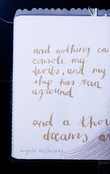 and nothing can
console my
lords, and my
ship has run
aground
and a thou
dreams an